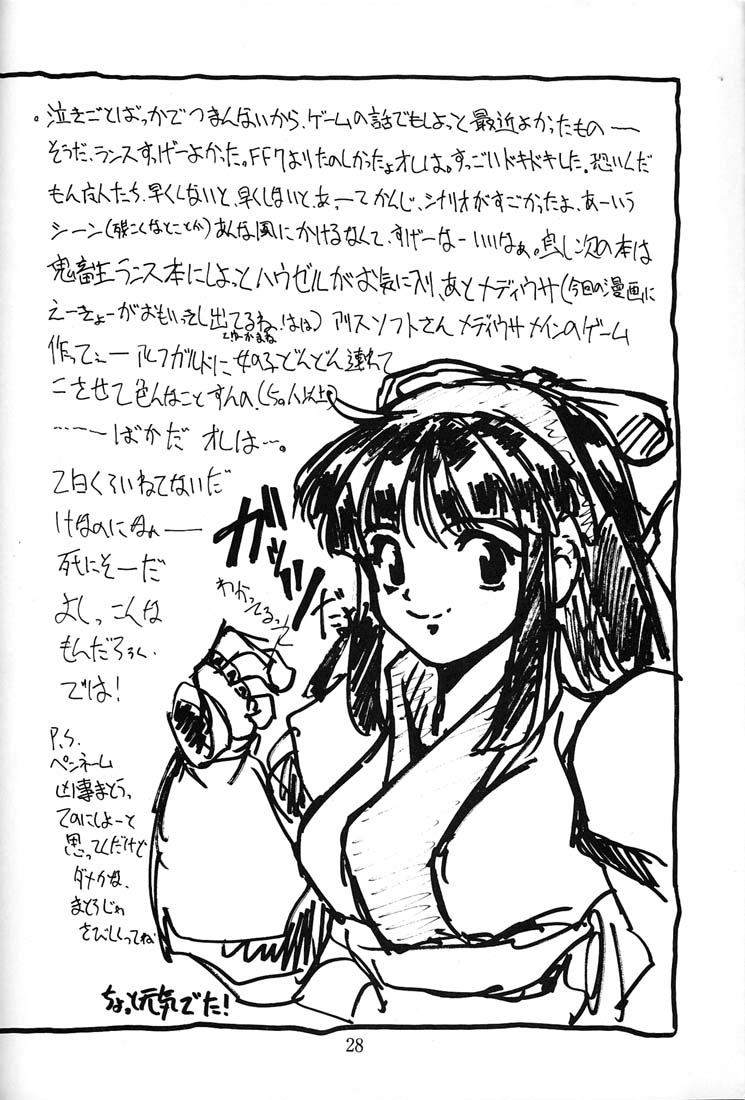 。泣きごとばっかでつまんないから、ゲームの話でもしよっと 最近よかったもの――
そうだ、ランスすっげーよかった。FF7よりたのしかったよオレは。すっごいドキドキした。恐いくだ
もんな人たち、早くしないと、早くしないと、あ、ーてかんじ、シナリオがすごかったよ、あーいう
シーン(残こくなとことか)あんな風にかけるなんて、すげーなーいいなぁ。良し次の本は
鬼畜王ランス本にしよっとハウゼルがお気に入り、あとメディウサ(今回の漫画に
えーきょーがおもいきし出てるね、ははは)アリスソフトさん メディウサメインのゲーム
作ってェー アルフガルドに女の子どんどん連れて
こさせて色んなことすんの。(50人以上)
……ーばかだ オレは…。
2日くらいねてないだ
けなのになぁ――
死にそーだ
よしっこんな
もんだろぅ。
では!
ガッツ
だっ
わかってるって
P.S.
ペンネーム
凶事まとう、
てのにしよーと
思ってんだけど
ダメかな、
まとうじゃ
さびしくってね
ちょっと元気でた!
28